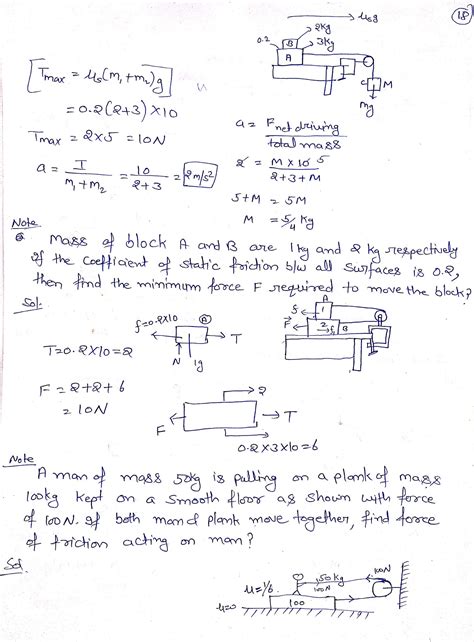 → μsg
(18)
2kg
3kg
0.2
B
A
C
M
mg
[Tmax = μs(m1+m2)g]
= 0.2(2+3)×10
Tmax = 2×5 = 10N
a = T/(m1+m2) = 10/(2+3) = 2m/s²
a = Fnet driving/total mass
2 = M×10 5/(2+3+M)
5+M = 5M
M = 5/4 kg
Note
Q Mass of block A and B are 1kg and 2 kg respectively
If the coefficient of static friction b/w all surfaces is 0.2,
then find the minimum force F required to move the block?
Sol.
f=0.2×10
→ T
N
1g
A
f
1
F
2
B
T=0.2×10=2
F = 2+2+6
= 10N
2
F
→ T
0.2×3×10=6
Note
A man of mass 50kg is pulling on a plank of mass
100kg kept on a smooth floor as shown with force
of 100N. If both man & plank move together, find force
of friction acting on man?
Sol.
100N
50kg
100N
μ=1/6
μ=0
100